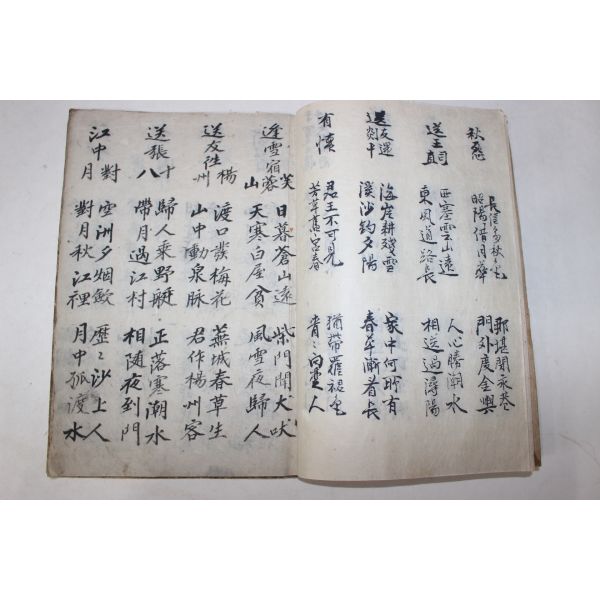 秋怨
長信多秋
昭陽借月華
那堪聞永巷
門外度金輿
送王司直
西塞雲山遠
東風道路長
人心勝潮水
相送過潯陽
海崖耕殘雪
溪沙釣夕陽
家中何所有
春草漸看長
有懷
君王不可見
芳草舊宮春
猶帶羅裙色
青〻向楚人
逢雪宿芙蓉山
日暮蒼山遠
天寒白屋貧
柴門聞犬吠
風雪夜歸人
送友往楊州
渡口發梅花
山中動泉脉
蕪城春草生
君作楊州客
送張十八
歸人乘野艇
帶月過江村
正落寒潮水
相隨夜到門
江中對月
空洲夕烟斂
對月秋江裡
歷〻沙上人
月中孤渡水